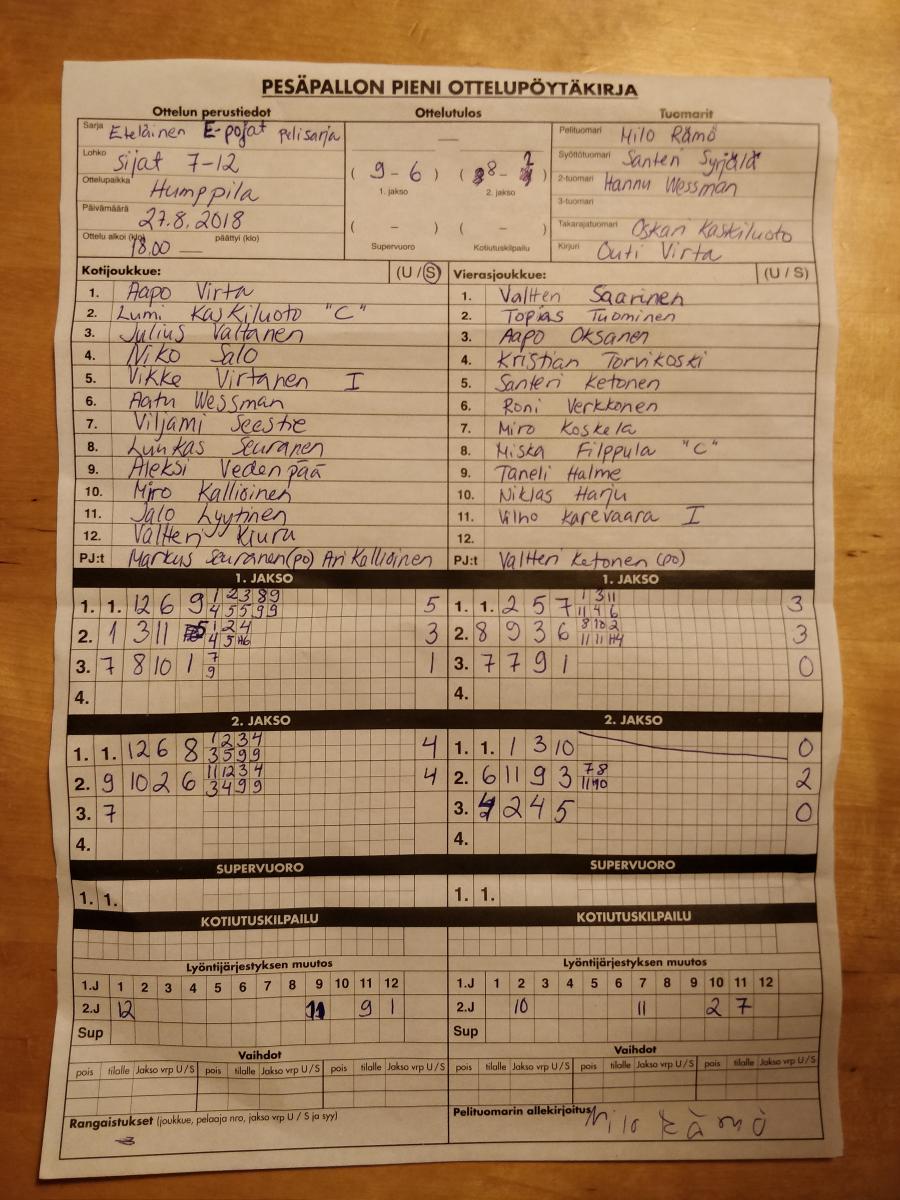 PESÄPALLON PIENI OTTELUPÖYTÄKIRJA
Ottelun perustiedot
Sarja Eteläinen E-pojat pelisarja
Lohko Sijat 7-12
Ottelupaikka Humppila
Päivämäärä 27.8.2018
Ottelu alkoi (klo) 18.00 päättyi (klo) —
Ottelutulos
—
( 9 - 6 ) ( 8 - 2 )
1. jakso 2. jakso
( - ) ( - )
Supervuoro Kotiutuskilpailu
Tuomarit
Pelituomari Milo Rämö
Syöttötuomari Santeri Syrjälä
2-tuomari Hannu Wessman
3-tuomari
Takarajatuomari Oskari Kaskiluoto
Kirjuri Outi Virta
Kotijoukkue: (U / S)
1. Aapo Virta
2. Lumi Kaskiluoto "C"
3. Julius Valtanen
4. Niko Salo
5. Vikke Virtanen I
6. Aatu Wessman
7. Viljami Seestie
8. Luukas Seuranen
9. Aleksi Vedenpää
10. Miro Kallioinen
11. Jalo Lyytinen
12. Valtteri Kiuru
PJ:t Markus Seuranen (po) Ari Kallioinen
Vierasjoukkue: (U / S)
1. Valtteri Saarinen
2. Topias Tuominen
3. Aapo Oksanen
4. Kristian Torvikoski
5. Santeri Ketonen
6. Roni Verkkonen
7. Miro Koskela
8. Miska Filppula "C"
9. Taneli Halme
10. Niklas Harju
11. Vilho Karevaara I
12.
PJ:t Valtteri Ketonen (po)
1. JAKSO
1. 1. 12 6 9 1 2 3 8 9 5
4 5 5 9 9
2. 1 3 11 5 1 2 4 3
4 5
3. 7 8 10 1 7 1
9
4.
1. JAKSO
1. 1. 2 5 7 1 3 11 3
11 4 6
2. 8 9 3 6 8 10 2 3
11 11
3. 7 7 9 1 0
4.
2. JAKSO
1. 1. 12 6 8 1 2 3 4 4
3 5 9 9
2. 9 10 2 6 11 12 3 4 4
3 4 9 9
3. 7
4.
2. JAKSO
1. 1. 1 3 10 0
2. 6 11 9 3 7 8 2
11 10
3. 2 4 5 0
4.
SUPERVUORO
1. 1.
SUPERVUORO
1. 1.
KOTIUTUSKILPAILU
KOTIUTUSKILPAILU
Lyöntijärjestyksen muutos
1.J 1 2 3 4 5 6 7 8 9 10 11 12
2.J 12 11 9 1
Sup
Lyöntijärjestyksen muutos
1.J 1 2 3 4 5 6 7 8 9 10 11 12
2.J 10 11 2 7
Sup
Vaihdot
pois tilalle Jakso vrp U / S pois tilalle Jakso vrp U / S pois tilalle Jakso vrp U / S
Vaihdot
pois tilalle Jakso vrp U / S pois tilalle Jakso vrp U / S pois tilalle Jakso vrp U / S
Rangaistukset (joukkue, pelaaja nro, jakso vrp U / S ja syy)
Pelituomarin allekirjoitus Milo Rämö